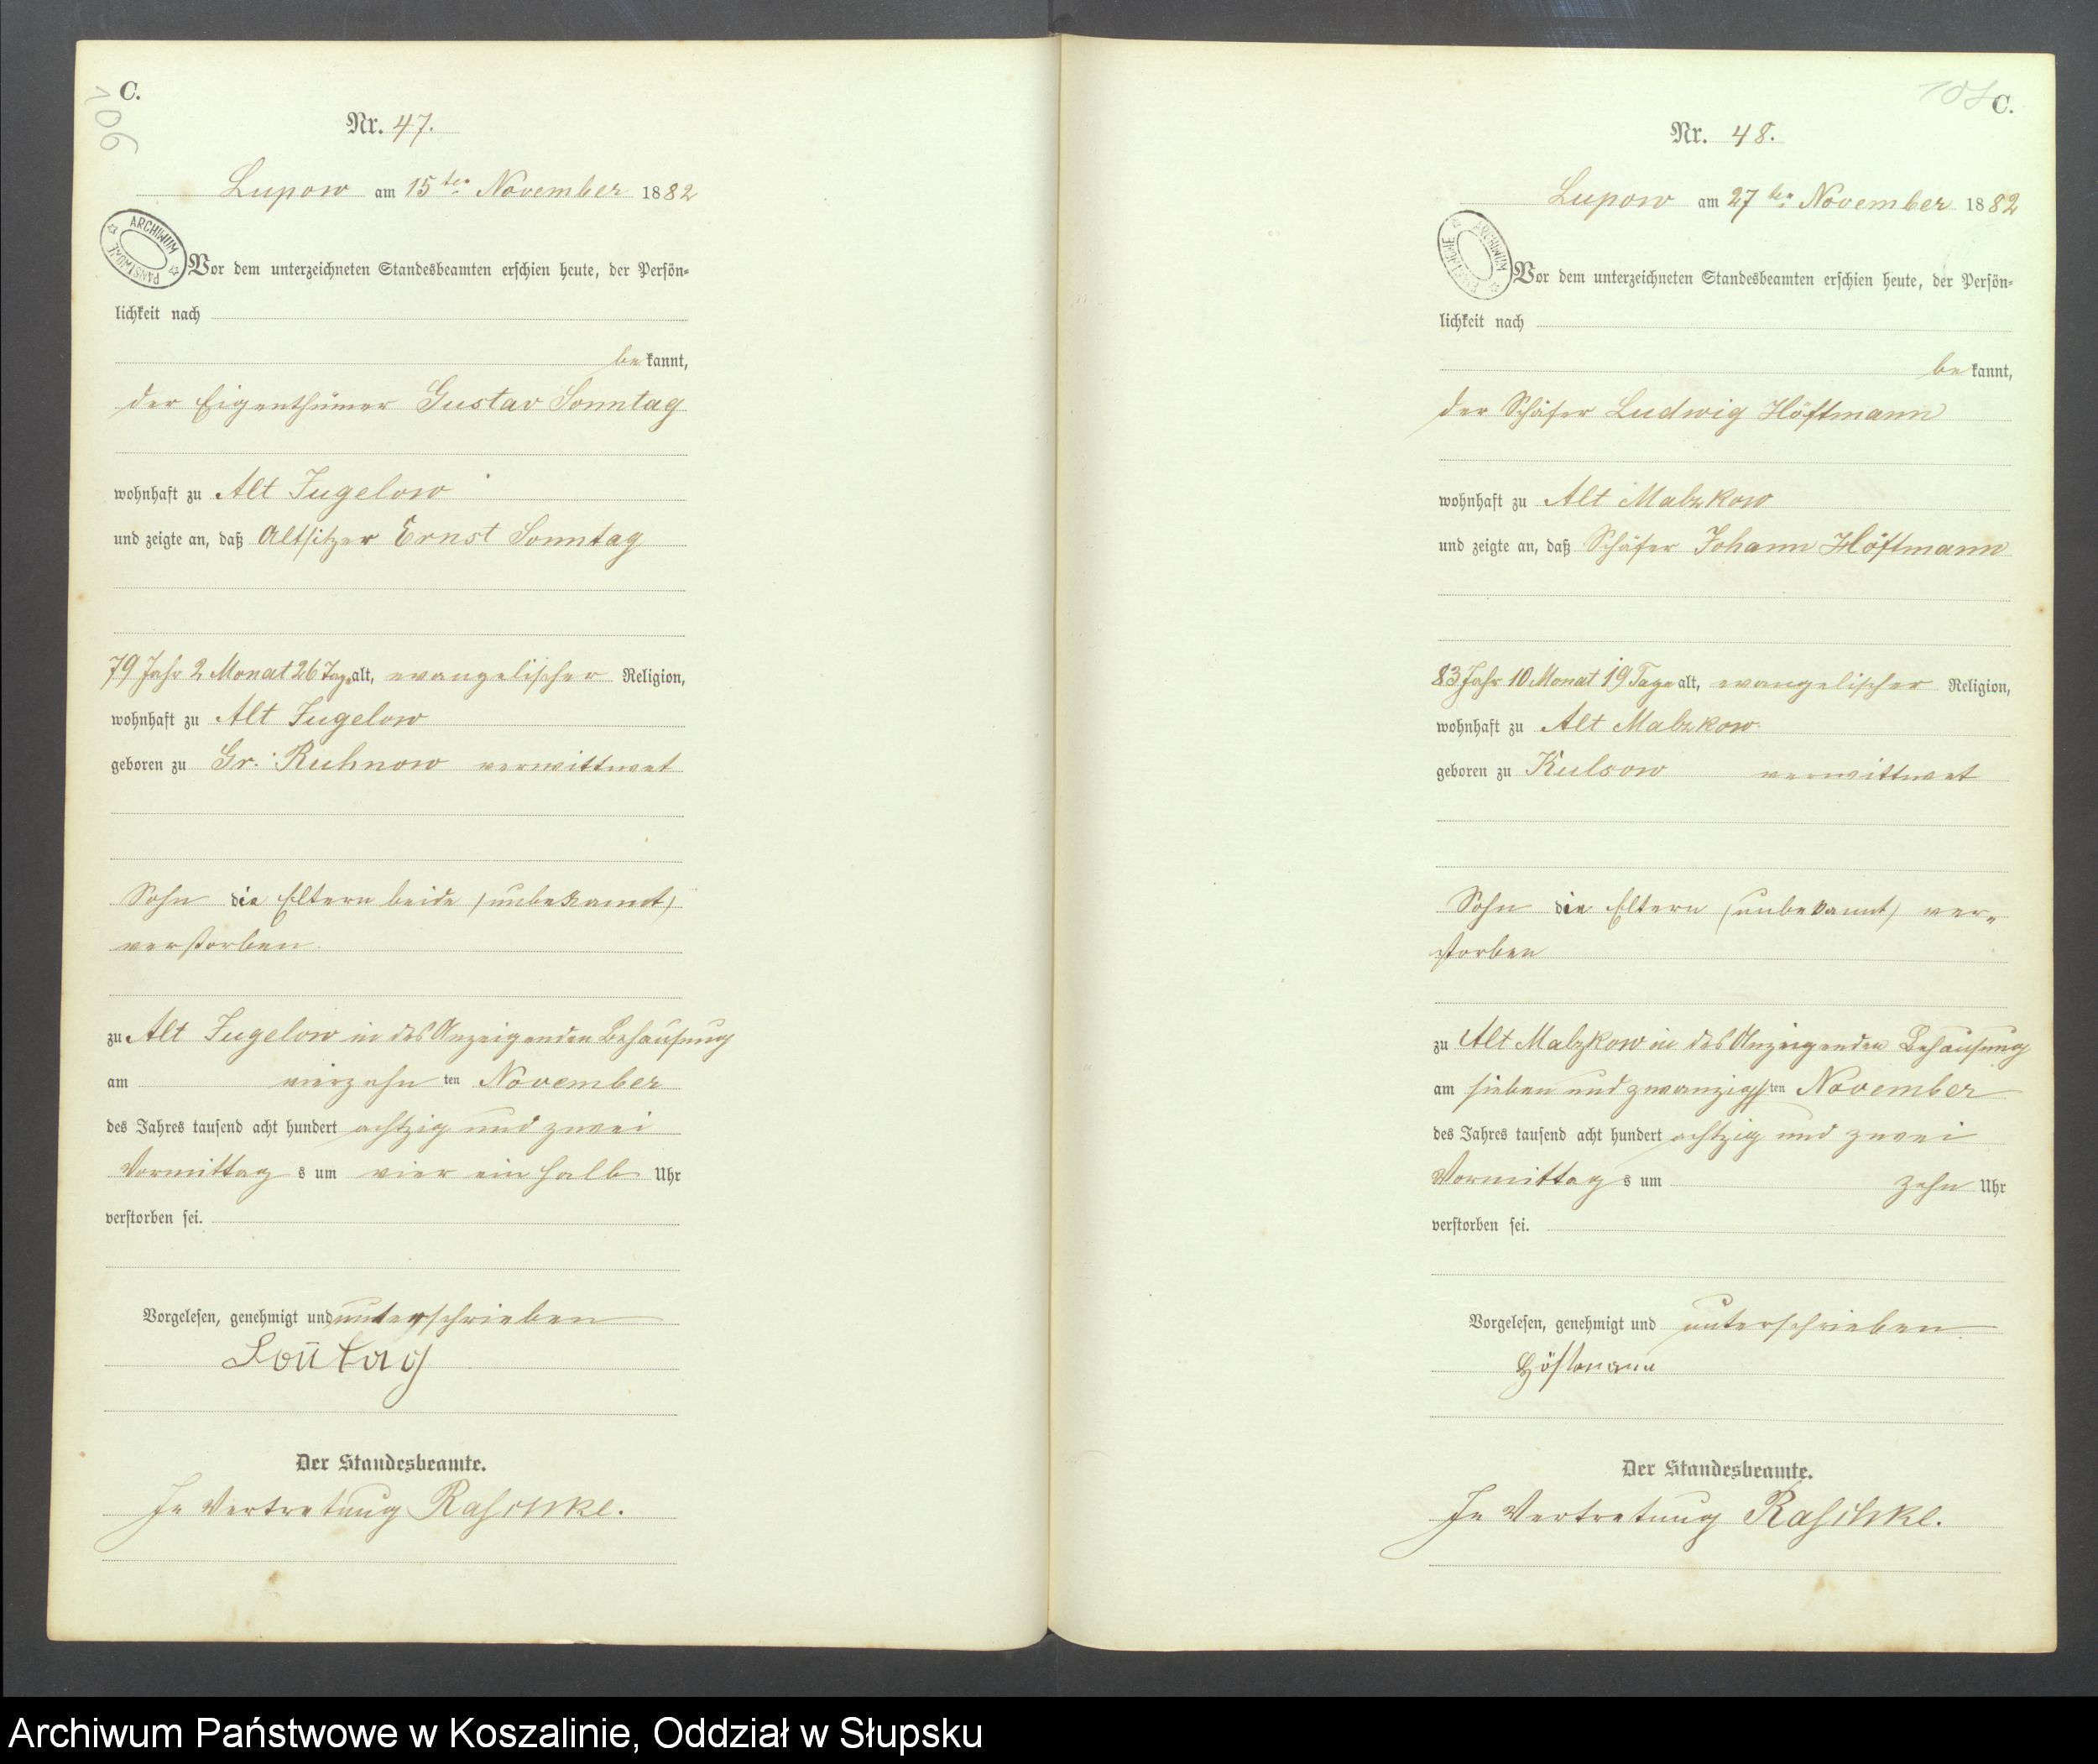 C.
106
Nr. 47.
Lupow am 15ten November 1882
ARCHIWUM PAŃSTWOWE
Vor dem unterzeichneten Standesbeamten erschien heute, der Persön-
lichkeit nach
bekannt,
der Eigenthümer Gustav Sonntag
wohnhaft zu Alt Jugelow
und zeigte an, daß Altsitzer Ernst Sonntag
79 Jahr 2 Monat 26 Tage alt, evangelischer Religion,
wohnhaft zu Alt Jugelow
geboren zu Gr. Ruhnow verwittwet
Sohn die Eltern beide (unbekannt)
verstorben.
zu Alt Jugelow in des Anzeigenden Behausung
am vierzehnten November
des Jahres tausend acht hundert achtzig und zwei
Vormittags um vier ein halb Uhr
verstorben sei.
Vorgelesen, genehmigt und unterschrieben
Son̄tag
Der Standesbeamte.
In Vertretung Raschke.
C.
Nr. 48.
Lupow am 27ten November 1882
ARCHIWUM PAŃSTWOWE
Vor dem unterzeichneten Standesbeamten erschien heute, der Persön-
lichkeit nach
bekannt,
der Schäfer Ludwig Höftmann
wohnhaft zu Alt Malzkow
und zeigte an, daß Schäfer Johann Höftmann
83 Jahr 10 Monat 19 Tage alt, evangelischer Religion,
wohnhaft zu Alt Malzkow.
geboren zu Kulsow verwittwet
Sohn die Eltern (unbekannt) ver-
storben
zu Alt Malzkow in des Anzeigenden Behausung
am sieben und zwanzigsten November
des Jahres tausend acht hundert achtzig und zwei
Vormittags um zehn Uhr
verstorben sei.
Vorgelesen, genehmigt und unterschrieben
Höftmann
Der Standesbeamte.
In Vertretung Raschke.
Archiwum Państwowe w Koszalinie, Oddział w Słupsku